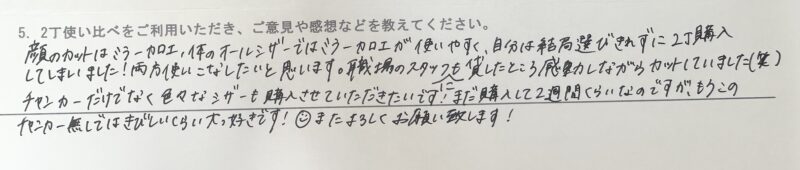 5. 2丁使い比べをご利用いただき、ご意見や感想などを教えてください。
顔のカットはミラーカロエ、体のオールシザーではミラーカロエが使いやすく、自分は結局選びきれずに2丁購入
してしまいました!両方使いこなしたいと思います。職場のスタッフにも貸したところ感動しながらカットしていました(笑)
チャンカーだけでなく色々なシザーも購入させていただきたいです!まだ購入して2週間くらいなのですが、もうこの
チャンカー無しではきびしいくらい大好きです!またよろしくお願い致します!